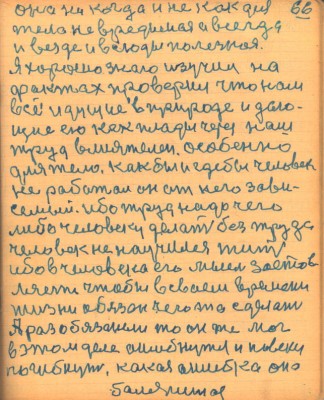 66
она никогда и не как для
тела не вредимая а всегда
и везде и всюду полезная.
Я хорошо знаю изучил на
фактах проверил что нам
всё идущие в природе и даю-
щие его как плади через наш
труд влиятелен. Особенно
для тело. Как бы и где бы человек
не работал он от него зави-
семый. ибо труд надо чего
либо человеку делат без труда
человек не научился жит
ибо в человека его мысл застов
ляет чтобы в своем времени
жизни обязон чего то сделат
А раз обязаный то он же мог
в этом деле ошибнутся и повеки
погибнут, какая ошибка оно
балятится